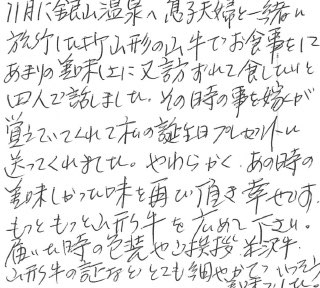 11月に銀山温泉へ息子夫婦と一緒に
旅行した折山形の山牛でお食事をして
あまりの美味しさに又訪ずれて食したいと
四人で話しました。その時の事を嫁くが
覚えていてくれて私の誕生日プレゼントに
送ってくれました。やわらかく、あの時の
美味しかった味を再び頂き幸せです。
もっともっと山形牛を広めて下さい。
届いた時の包装やご挨拶 米沢牛、
山形牛の証など とても細やかで いっそう
美味でした。